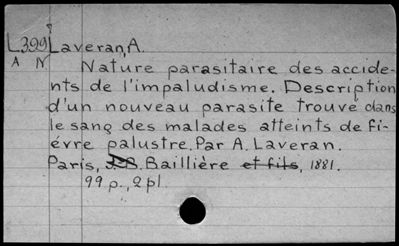 L399 Laveran, A.
A N Nature parasitaire des accide-
nts de l'impaludisme. Description
d'un nouveau parasite trouvé dans
le sang des malades atteints de fi-
évre palustre. Par A. Laveran.
Paris, J.-B. Baillière et fils, 1881.
99 p., 2 pl.